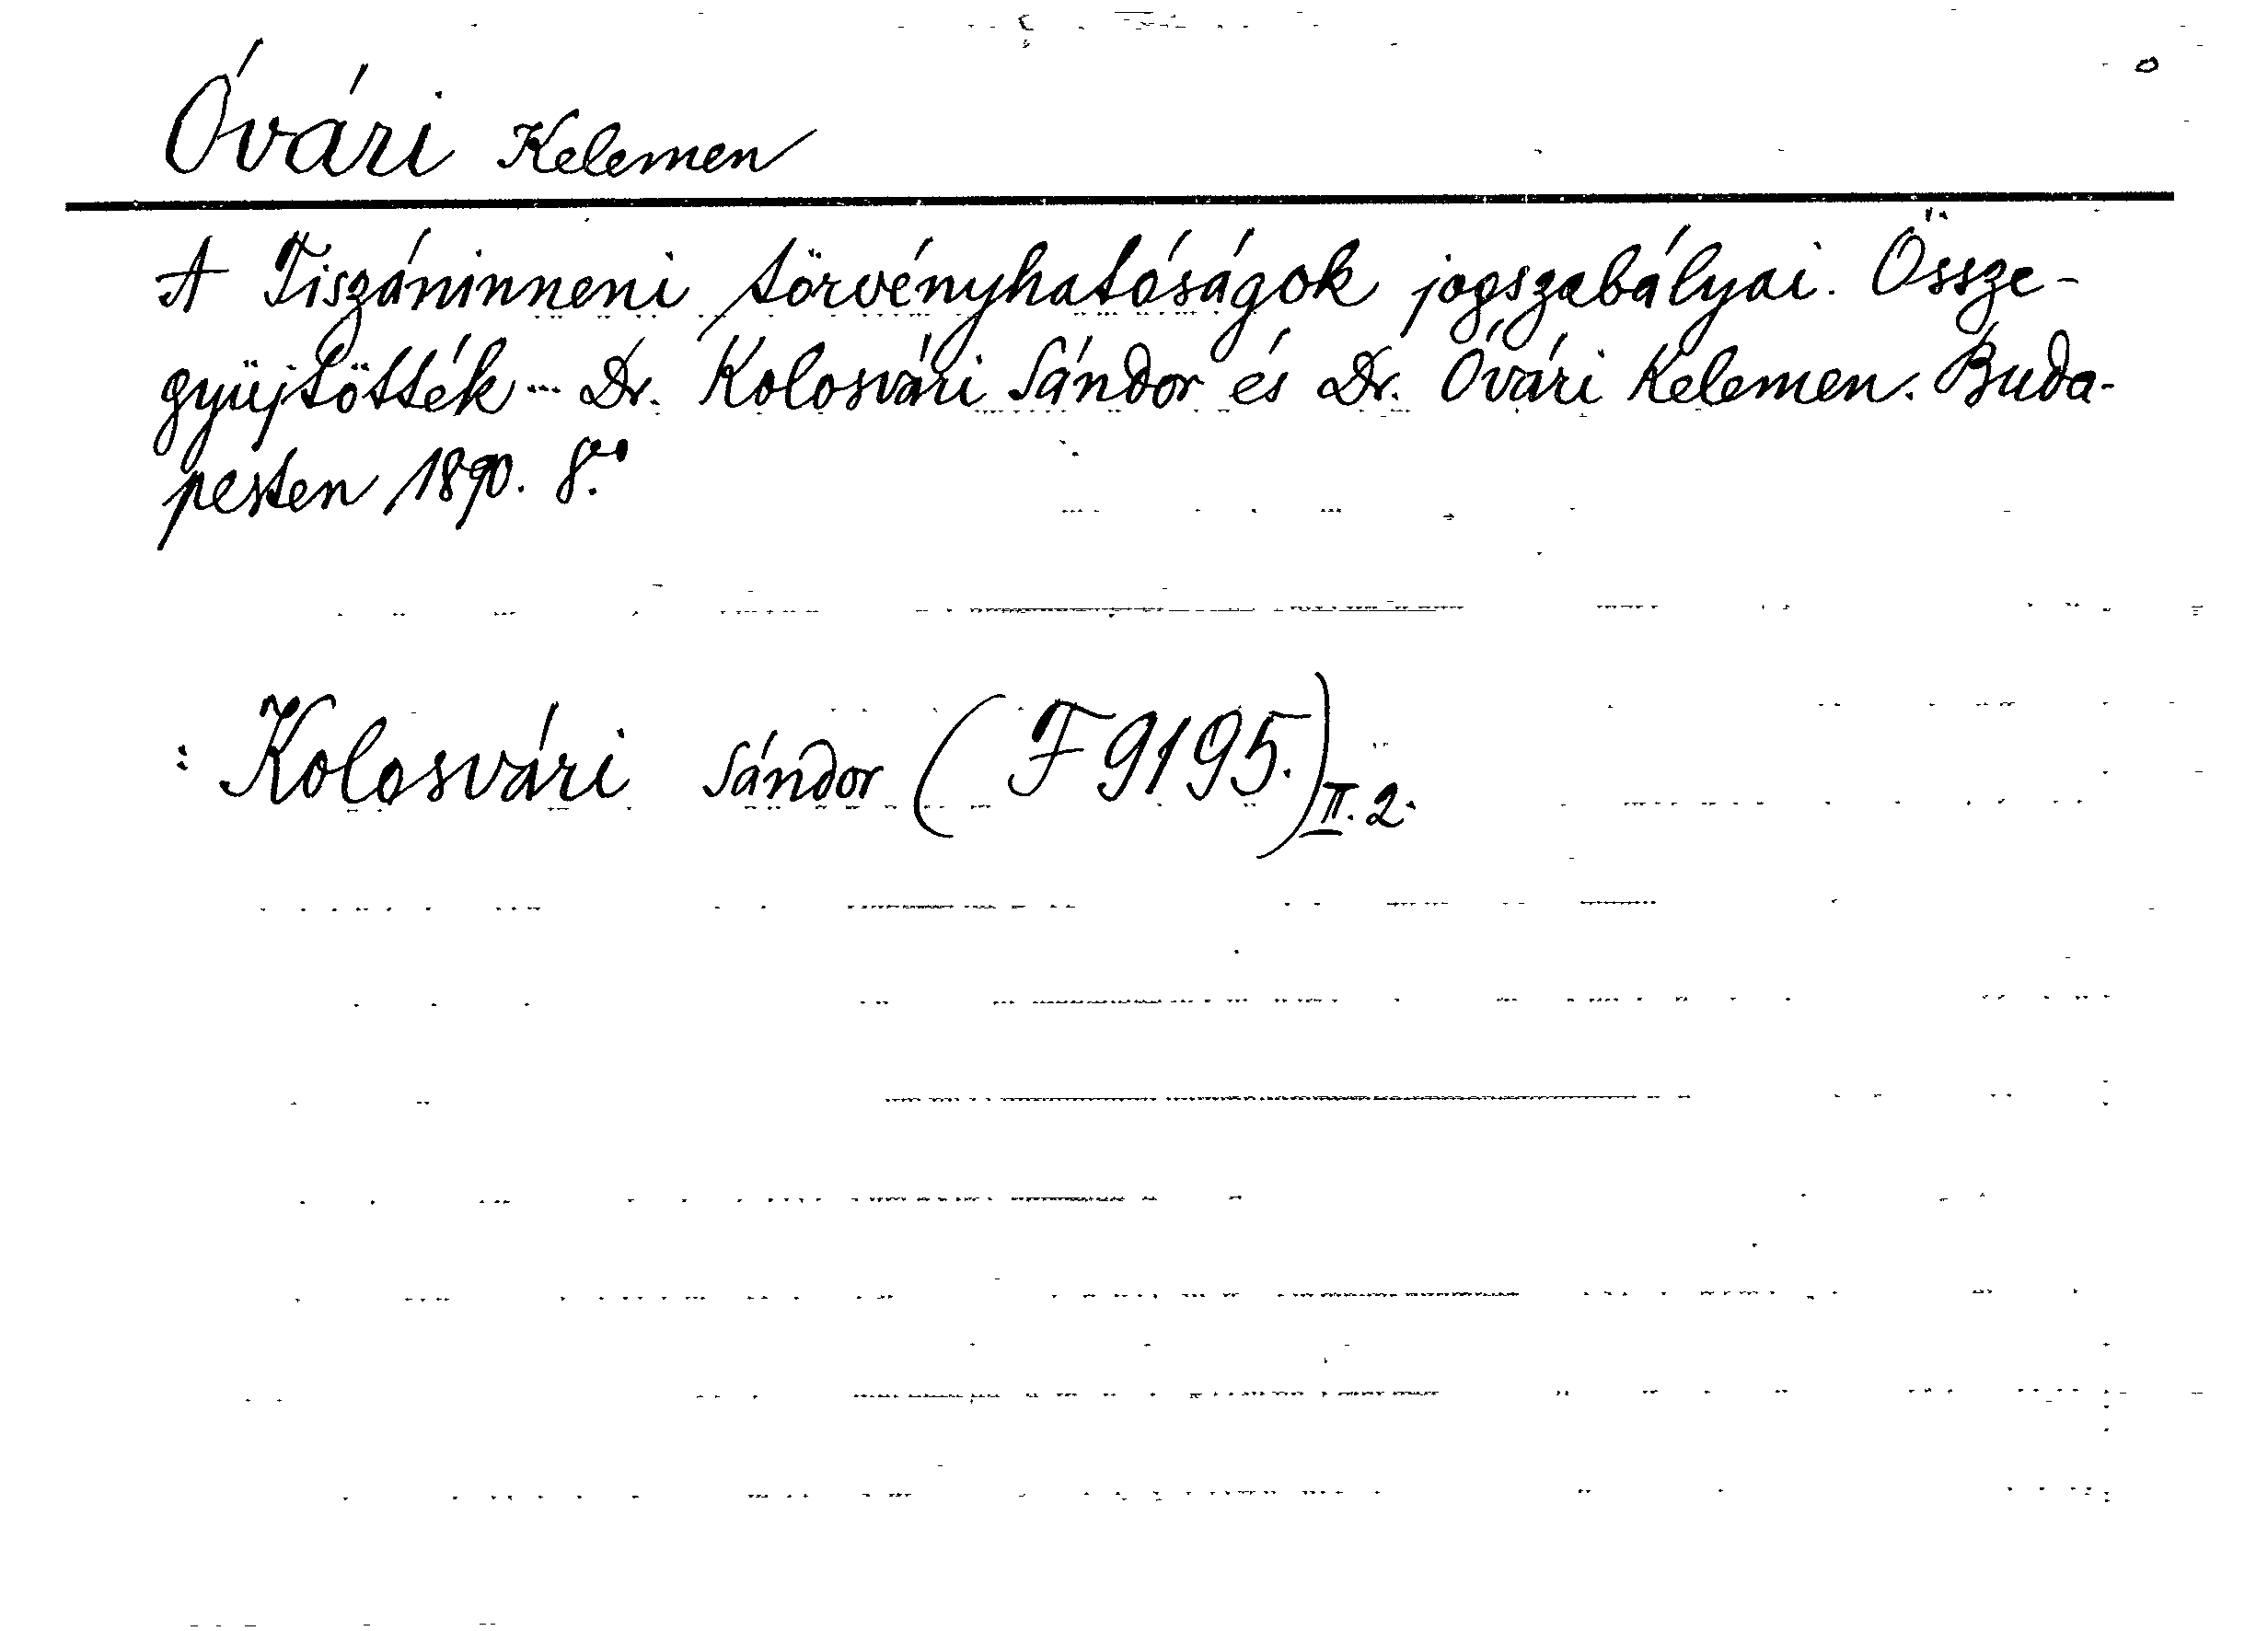 Óvári Kelemen
A Tiszáninneni törvényhatóságok jogszabályai. Össze-
gyüjtötték ... Dr. Kolosvári Sándor és Dr. Óvári Kelemen. Buda-
pesten 1890. 8.º
: Kolosvári Sándor (F 9195.) II. 2.